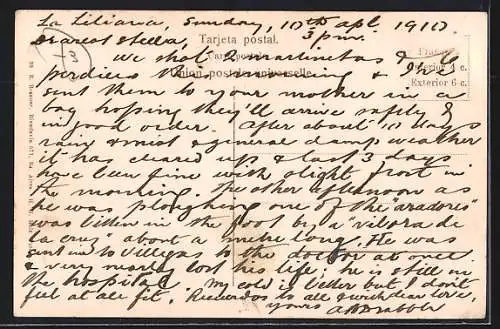 La Liliana, Sunday, 10th Apl. 1910
Dearest Stella,
3 p.m.
Tarjeta postal.
We shot 2 martinetas & 4
perdices this morning & I've
Union postal universelle
Interior 4 c.
Exterior 6 c.
sent them to your mother in a
bag hoping they'll arrive safely &
in good order. After about 10 days
rain & mist & general damp weather
it has cleared up & last 3 days
have been fine with slight frost in
the morning. The other afternoon as
he was ploughing one of the "aradores"
was bitten in the foot by a "vibora de
la cruz" about a metre long. He was
sent in to Villegas to the doctor at once
& very nearly lost his life; he is still in
the hospital. My cold is better but I don't
feel at all fit. Recuerdos to all & much dear love,
yours